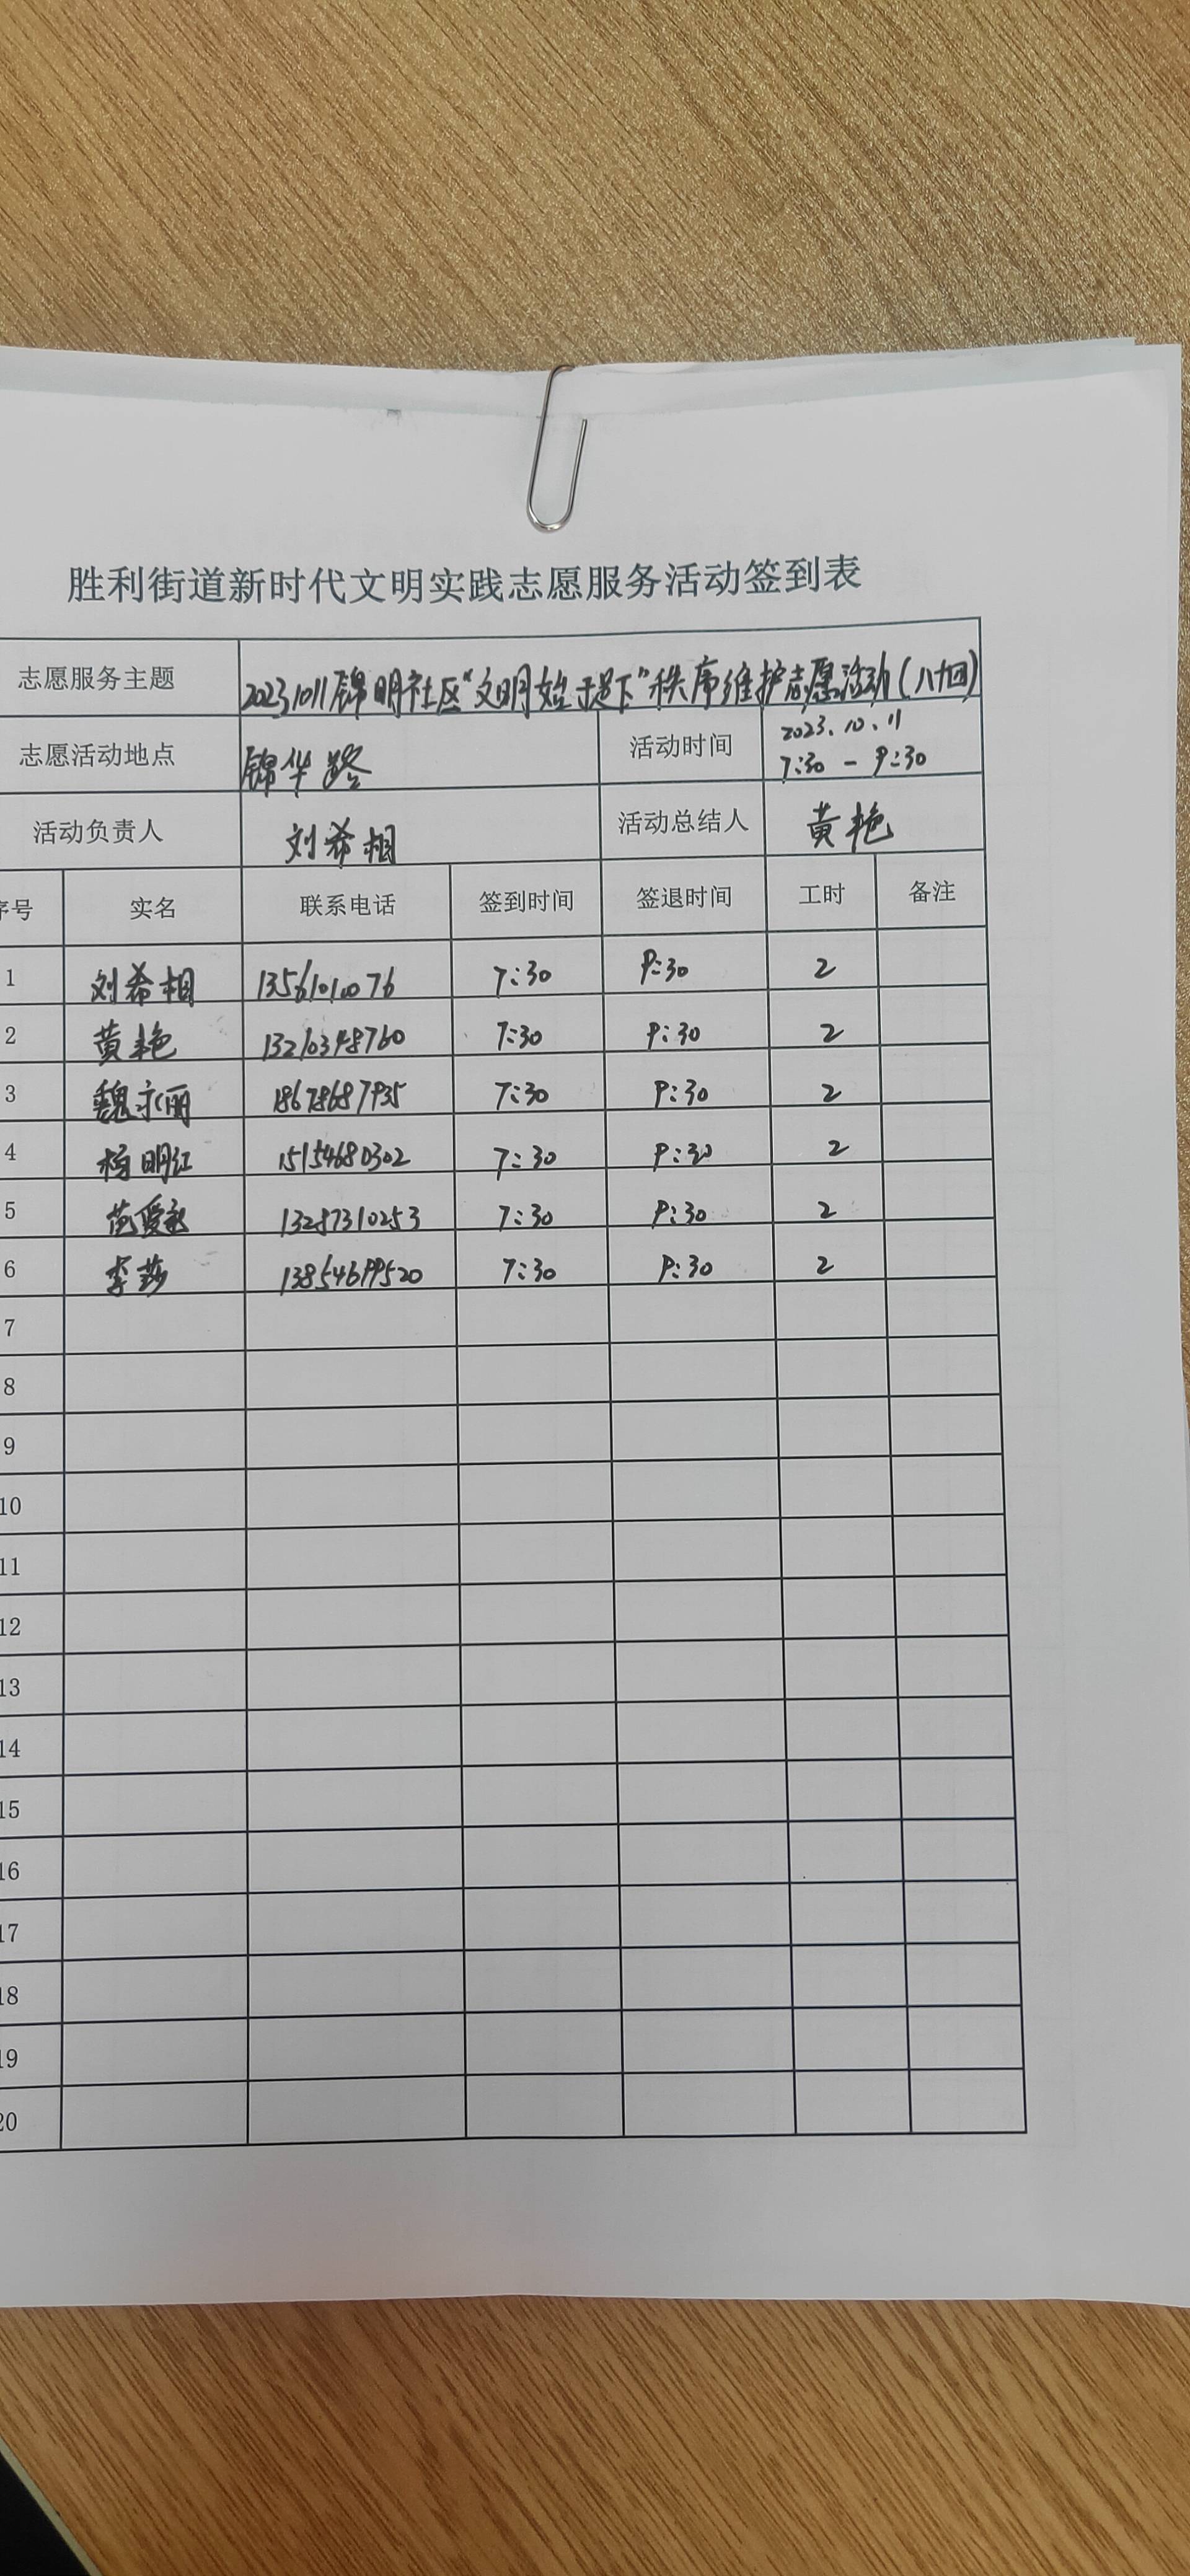 胜利街道新时代文明实践志愿服务活动签到表
志愿服务主题 20231011锦明社区“文明始于足下”秩序维护志愿活动(八十四)
志愿活动地点 锦华路 活动时间 2023.10.11 7:30-9:30
活动负责人 刘希相 活动总结人 黄艳
序号 实名 联系电话 签到时间 签退时间 工时 备注
1 刘希相 13561010076 7:30 9:30 2
2 黄艳 13210348760 7:30 9:30 2
3 魏永丽 18678687935 7:30 9:30 2
4 杨明江 15154680302 7:30 9:30 2
5 13287310253 7:30 9:30 2
6 李莎 13854619520 7:30 9:30 2
7
8
9
10
11
12
13
14
15
16
17
18
19
20